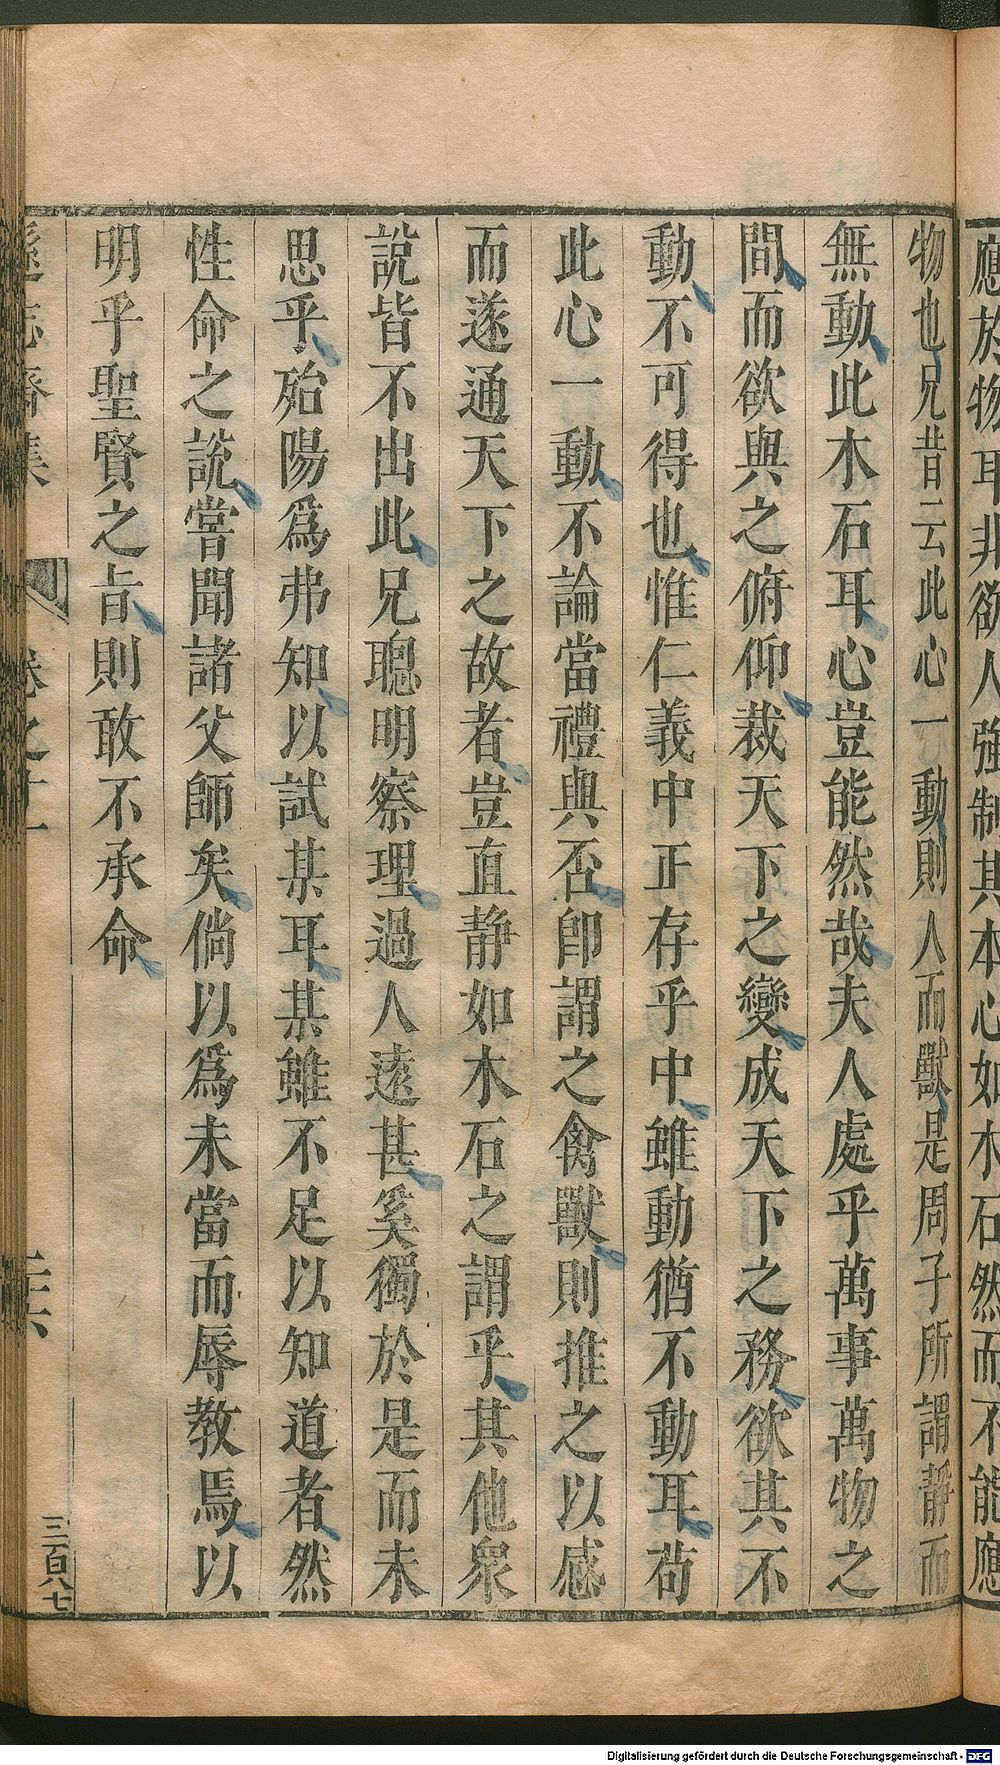 應於物耳非欲人強制其本心如木石然而不能應
物也兄昔云此心一動則人而獸是周子所謂靜而
無動此木石耳心豈能然哉夫人處乎萬事萬物之
間而欲與之俯仰裁天下之變成天下之務欲其不
動不可得也惟仁義中正存乎中雖動猶不動耳苟
此心一動不論當禮與否卽謂之禽獸則推之以感
而遂通天下之故者豈直静如木石之謂乎其他衆
說皆不出此兄聰明察理過人遠甚奚獨於是而未
思乎殆陽爲弗知以試某耳某雖不足以知道者然
性命之說嘗聞諸父師矣倘以爲未當而辱教焉以
明乎聖賢之旨則敢不承命
遜志齋集
卷之十一
二十六
三百八七
Digitalisierung gefördert durch die Deutsche Forschungsgemeinschaft - DFG